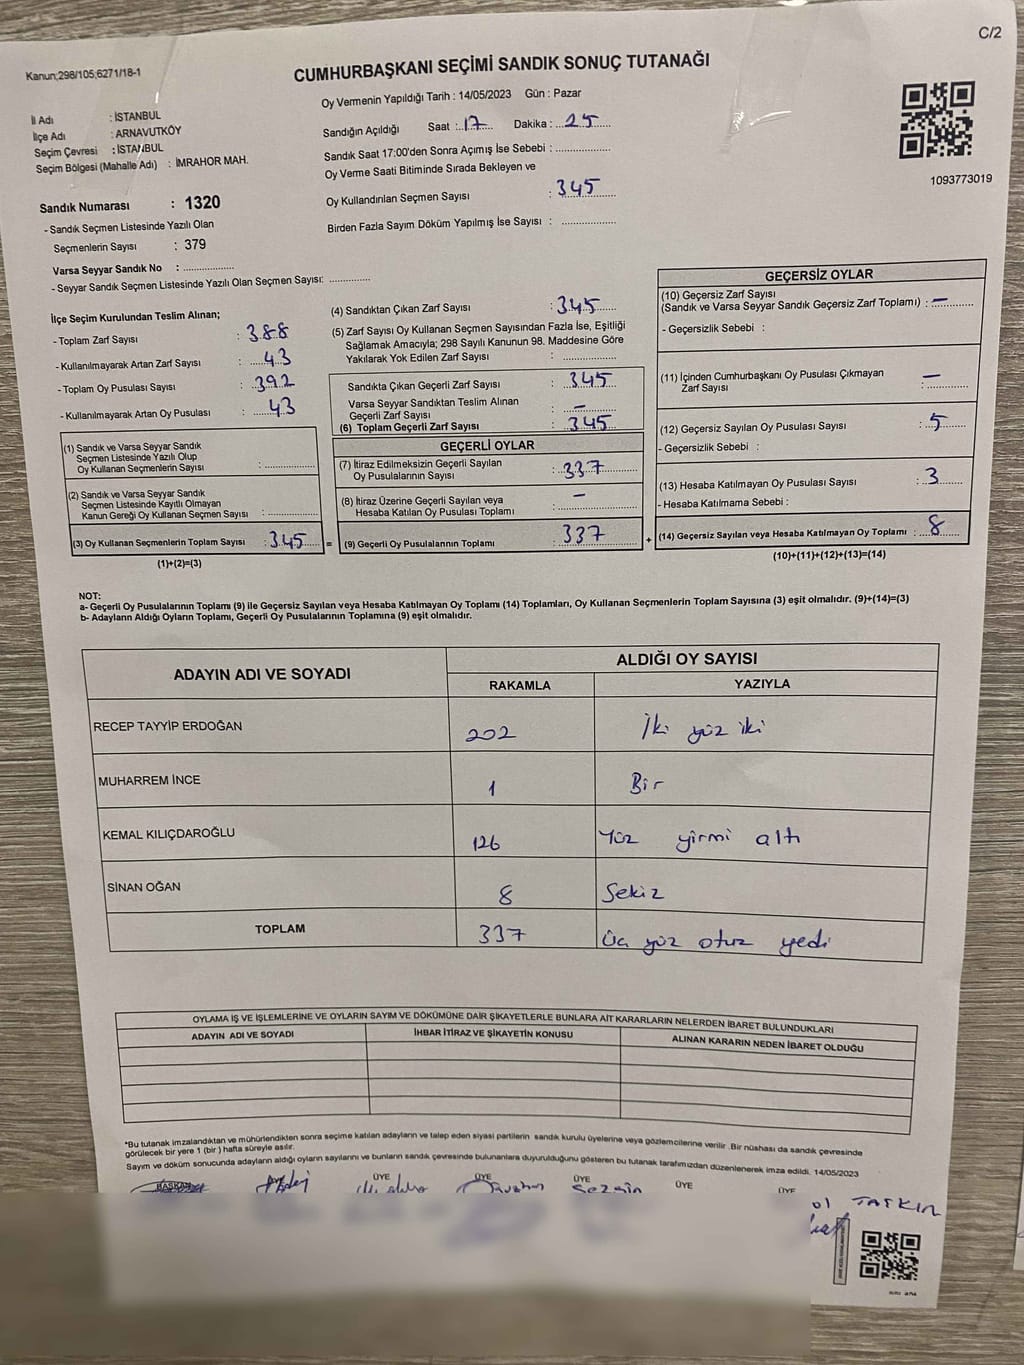 C/2
Kanun;298/105;6271/18-1
CUMHURBAŞKANI SEÇİMİ SANDIK SONUÇ TUTANAĞI
Oy Vermenin Yapıldığı Tarih : 14/05/2023 Gün : Pazar
İl Adı : İSTANBUL
İlçe Adı : ARNAVUTKÖY
Seçim Çevresi : İSTANBUL
Seçim Bölgesi (Mahalle Adı) : İMRAHOR MAH.
Sandığın Açıldığı Saat : 17 Dakika : 25
Sandık Saat 17:00'den Sonra Açımış İse Sebebi :
Oy Verme Saati Bitiminde Sırada Bekleyen ve
Oy Kullandırılan Seçmen Sayısı : 345
Birden Fazla Sayım Döküm Yapılmış İse Sayısı :
1093773019
Sandık Numarası : 1320
- Sandık Seçmen Listesinde Yazılı Olan
Seçmenlerin Sayısı : 379
Varsa Seyyar Sandık No :
- Seyyar Sandık Seçmen Listesinde Yazılı Olan Seçmen Sayısı:
İlçe Seçim Kurulundan Teslim Alınan;
- Toplam Zarf Sayısı : 388
- Kullanılmayarak Artan Zarf Sayısı : 43
- Toplam Oy Pusulası Sayısı : 392
- Kullanılmayarak Artan Oy Pusulası : 43
(1) Sandık ve Varsa Seyyar Sandık
Seçmen Listesinde Yazılı Olup
Oy Kullanan Seçmenlerin Sayısı :
(2) Sandık ve Varsa Seyyar Sandık
Seçmen Listesinde Kayıtlı Olmayan
Kanun Gereği Oy Kullanan Seçmen Sayısı :
(3) Oy Kullanan Seçmenlerin Toplam Sayısı : 345 =
(1)+(2)=(3)
(4) Sandıktan Çıkan Zarf Sayısı : 345
(5) Zarf Sayısı Oy Kullanan Seçmen Sayısından Fazla İse, Eşitliği
Sağlamak Amacıyla; 298 Sayılı Kanunun 98. Maddesine Göre
Yakılarak Yok Edilen Zarf Sayısı :
Sandıkta Çıkan Geçerli Zarf Sayısı : 345
Varsa Seyyar Sandıktan Teslim Alınan
Geçerli Zarf Sayısı : –
(6) Toplam Geçerli Zarf Sayısı : 345
GEÇERLİ OYLAR
(7) İtiraz Edilmeksizin Geçerli Sayılan
Oy Pusulalarının Sayısı : 337
(8) İtiraz Üzerine Geçerli Sayılan veya
Hesaba Katılan Oy Pusulası Toplamı : –
(9) Geçerli Oy Pusulalarının Toplamı : 337 +
GEÇERSİZ OYLAR
(10) Geçersiz Zarf Sayısı
(Sandık ve Varsa Seyyar Sandık Geçersiz Zarf Toplamı) : –
- Geçersizlik Sebebi :
(11) İçinden Cumhurbaşkanı Oy Pusulası Çıkmayan
Zarf Sayısı : –
(12) Geçersiz Sayılan Oy Pusulası Sayısı : 5
- Geçersizlik Sebebi :
(13) Hesaba Katılmayan Oy Pusulası Sayısı : 3
- Hesaba Katılmama Sebebi :
(14) Geçersiz Sayılan veya Hesaba Katılmayan Oy Toplamı : 8
(10)+(11)+(12)+(13)=(14)
NOT:
a- Geçerli Oy Pusulalarının Toplamı (9) ile Geçersiz Sayılan veya Hesaba Katılmayan Oy Toplamı (14) Toplamları, Oy Kullanan Seçmenlerin Toplam Sayısına (3) eşit olmalıdır. (9)+(14)=(3)
b- Adayların Aldığı Oyların Toplamı, Geçerli Oy Pusulalarının Toplamına (9) eşit olmalıdır.
ADAYIN ADI VE SOYADI ALDIĞI OY SAYISI
RAKAMLA YAZIYLA
RECEP TAYYİP ERDOĞAN 202 İki yüz iki
MUHARREM İNCE 1 Bir
KEMAL KILIÇDAROĞLU 126 Yüz yirmi altı
SİNAN OĞAN 8 Sekiz
TOPLAM 337 Üç yüz otuz yedi
OYLAMA İŞ VE İŞLEMLERİNE VE OYLARIN SAYIM VE DÖKÜMÜNE DAİR ŞİKAYETLERLE BUNLARA AİT KARARLARIN NELERDEN İBARET BULUNDUKLARI
ADAYIN ADI VE SOYADI İHBAR İTİRAZ VE ŞİKAYETİN KONUSU ALINAN KARARIN NEDEN İBARET OLDUĞU
*Bu tutanak imzalandıktan ve mühürlendikten sonra seçime katılan adayların ve talep eden siyasi partilerin sandık kurulu üyelerine veya gözlemcilerine verilir .Bir nüshası da sandık çevresinde
görülecek bir yere 1 (bir ) hafta süreyle asılır.
Sayım ve döküm sonucunda adayların aldığı oyların sayılarını ve bunların sandık çevresinde bulunanlara duyurulduğunu gösteren bu tutanak tarafımızdan düzenlenerek imza edildi. 14/05/2023
BAŞKAN ÜYE ÜYE ÜYE ÜYE ÜYE
Sezgin